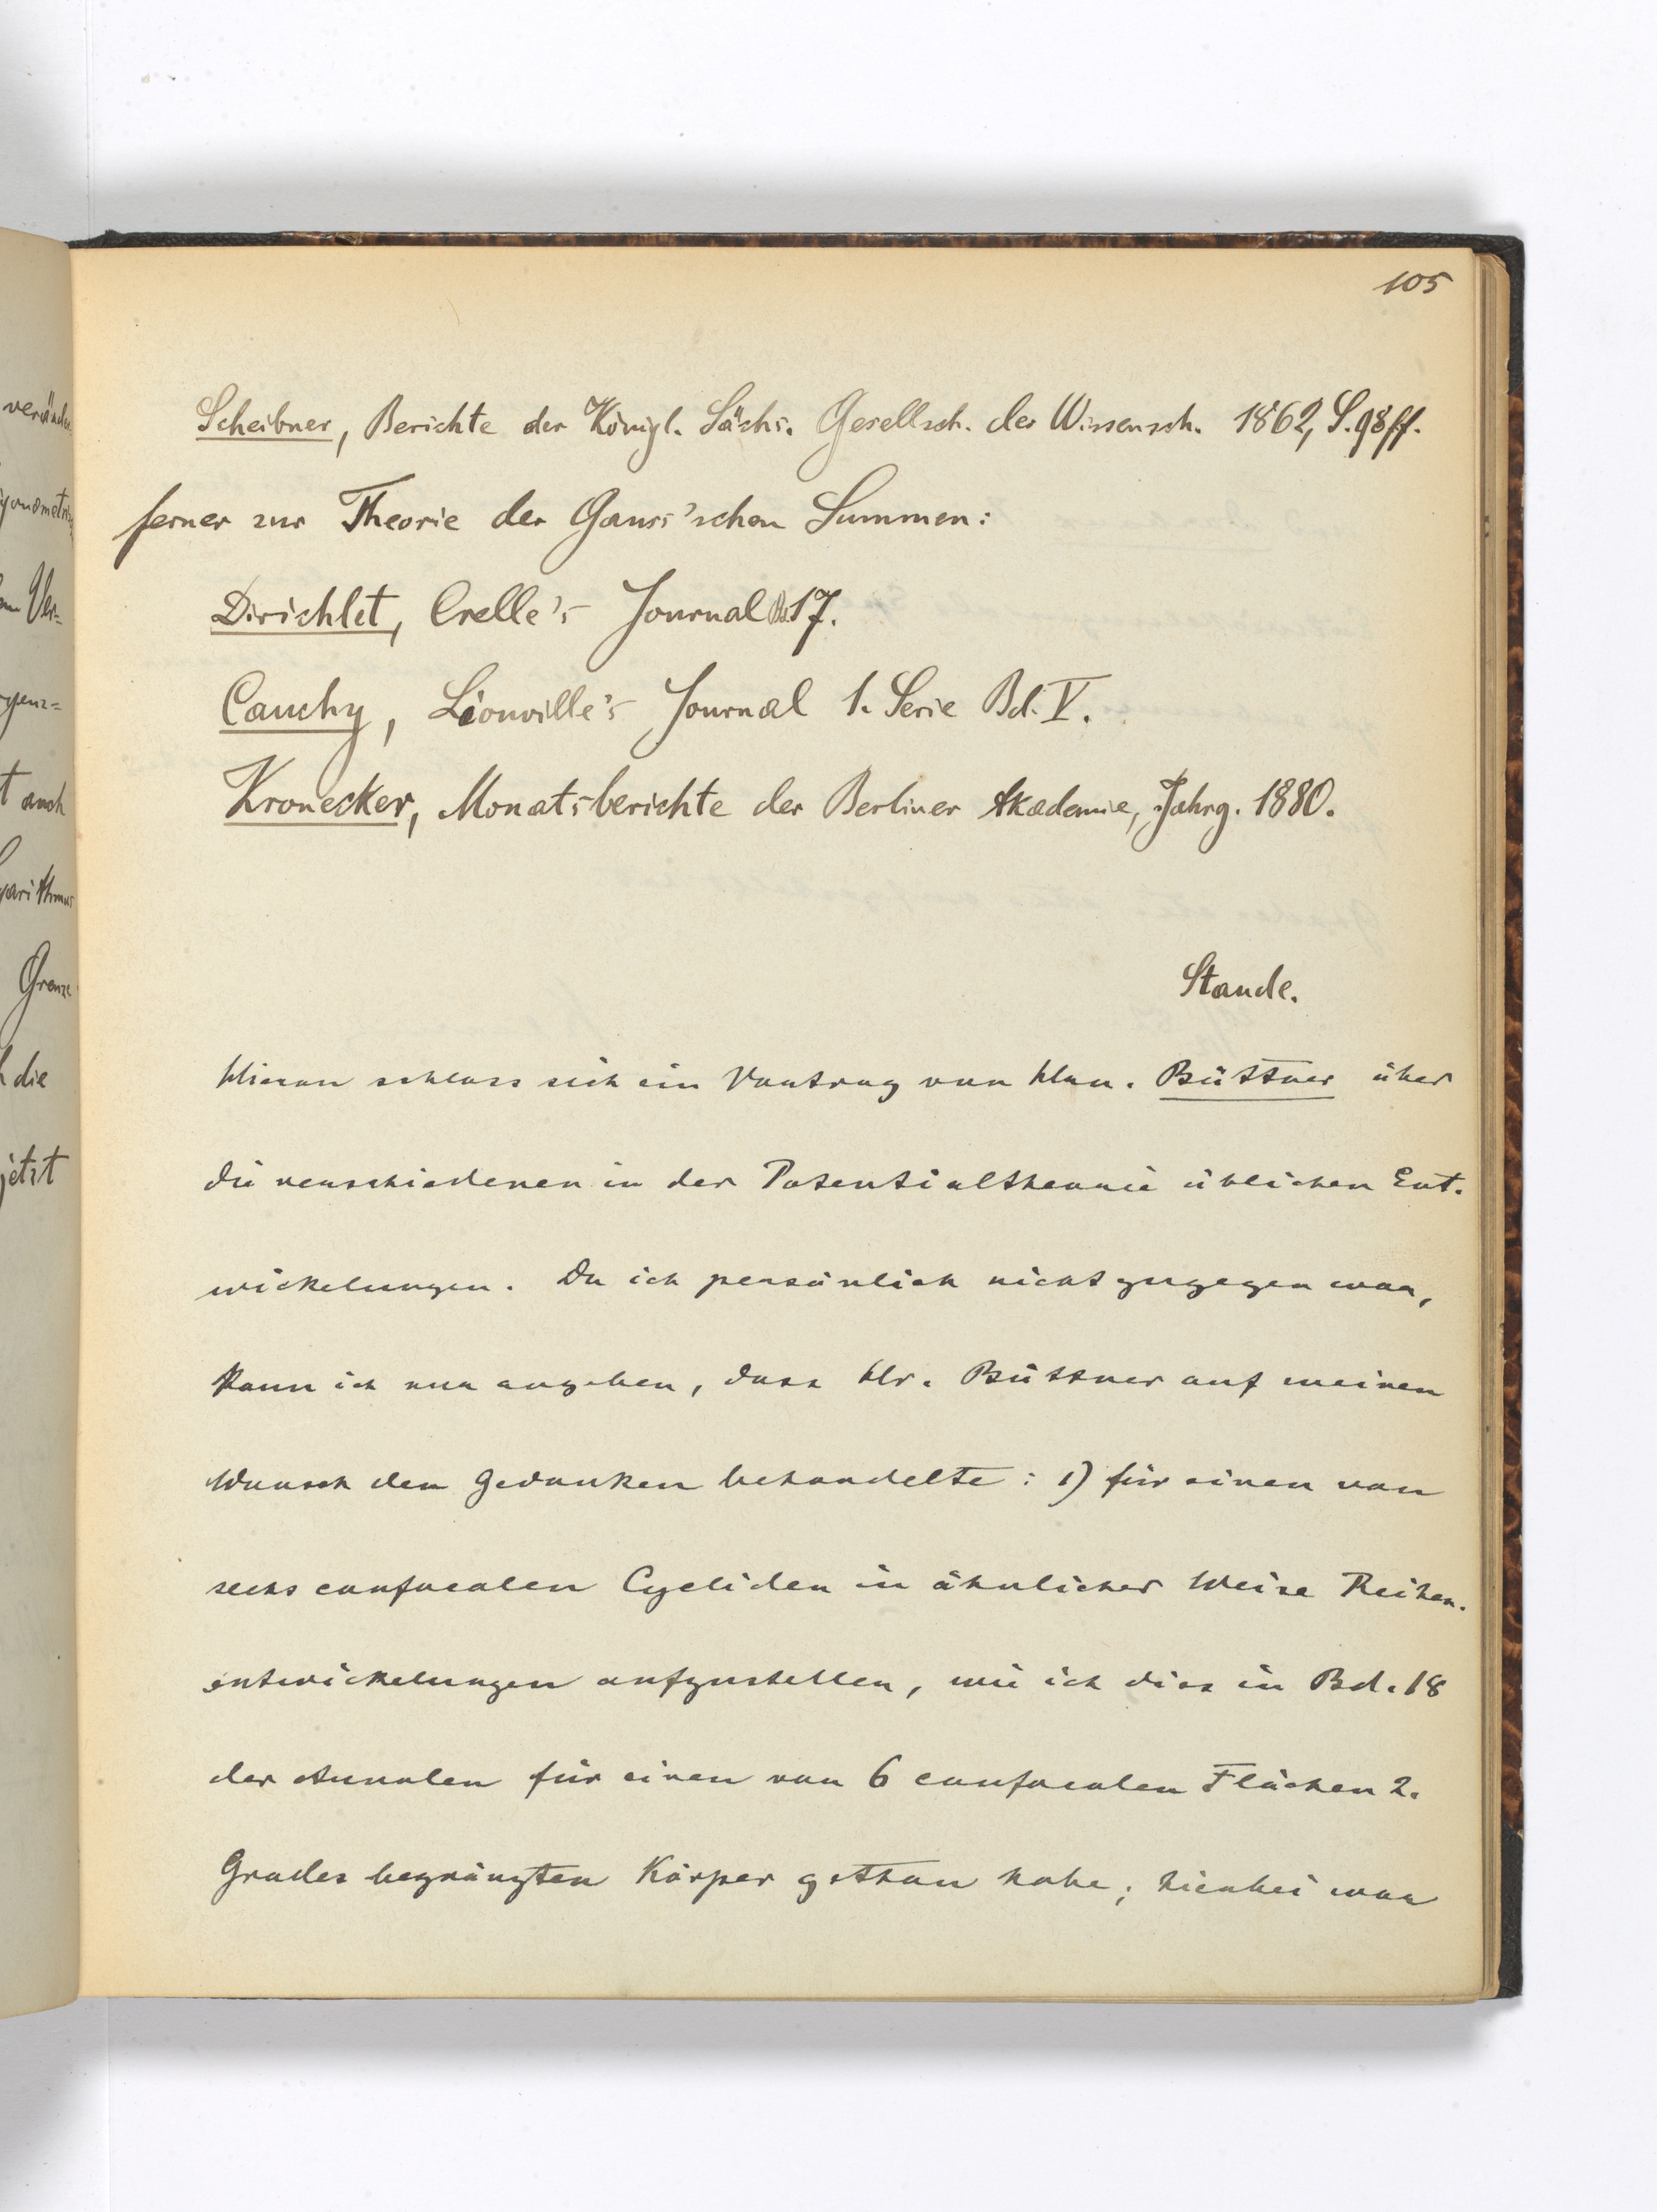 105
Scheibner, Berichte der Königl. Sächs. Gesellsch. der Wissensch. 1862, S. 98 ff.
ferner zur Theorie der Gauss'schen Summen:
Dirichlet, Crelle's Journal Bd. 17.
Cauchy, Liouville's Journal 1. Serie Bd. V.
Kronecker, Monatsberichte der Berliner Akademie, Jahrg. 1880.
Staude.
Hieran schloss sich ein Vortrag von Hrn. Büttner über
die verschiedenen in der Potentialtheorie üblichen Ent-
wickelungen. Da ich persönlich nicht zugegen war,
kann ich nur angeben, dass Hr. Büttner auf meinen
Wunsch den Gedanken behandelte: 1) für einen von
sechs confocalen Cycliden in ähnlicher Weise Reihen-
entwickelungen aufzustellen, wie ich dies in Bd. 18
der Annalen für einen von 6 confocalen Flächen 2.
Grades begränzten Körper gethan habe; hierbei war
verände
gonometri
Ver=
genz=
t auch
garithmus
Grenze
die
jetzt